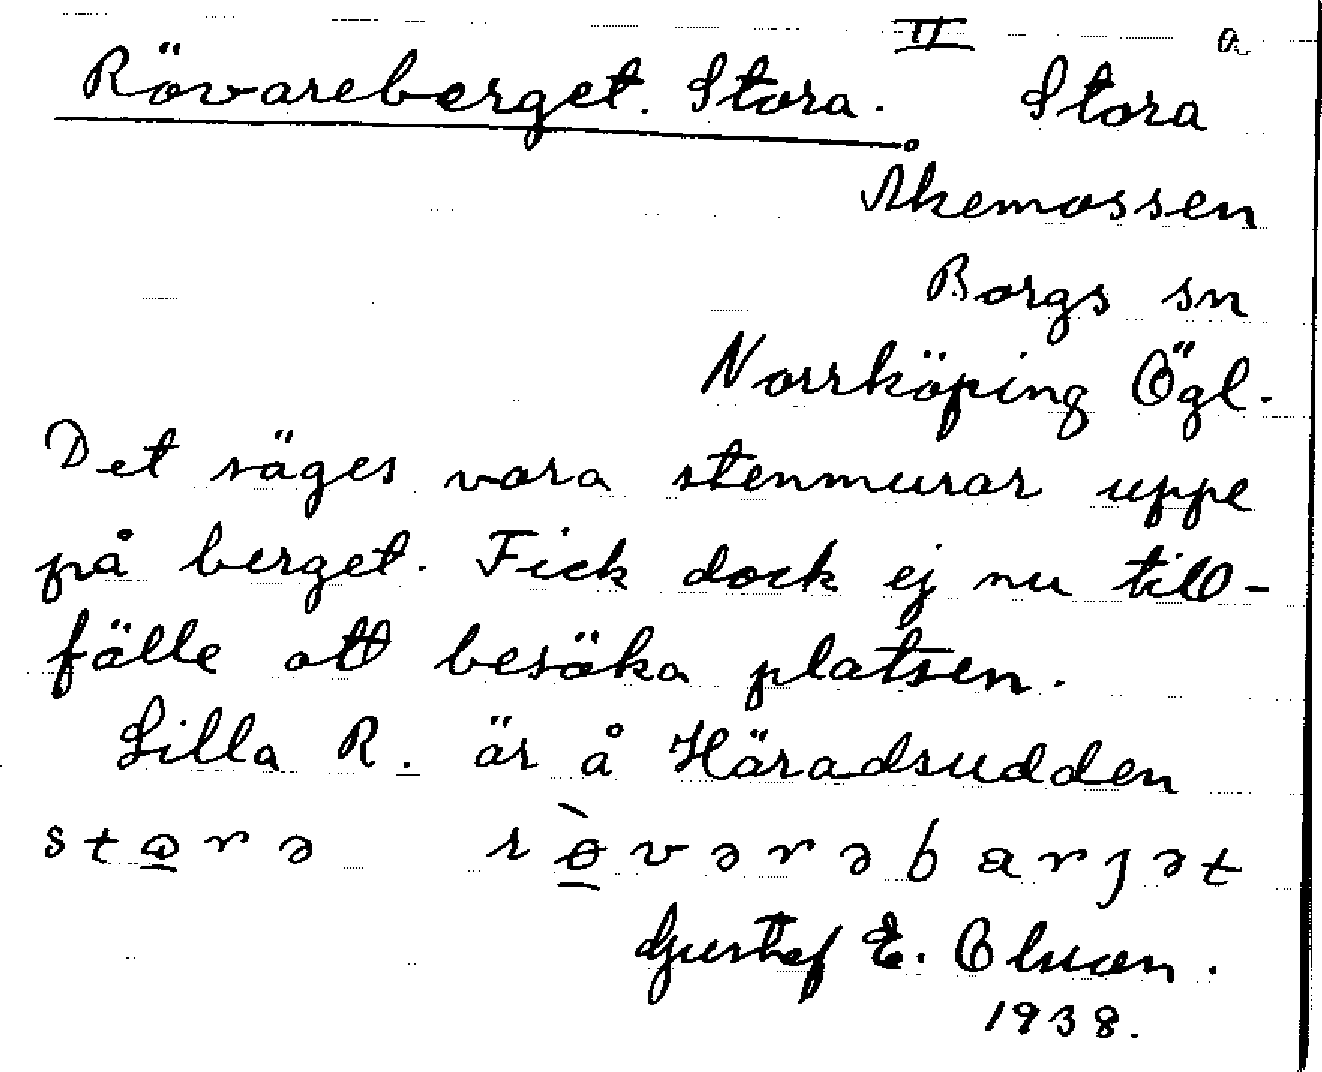 II a
Rövareberget. Stora. Stora
Åkemossen
Borgs sn
Norrköping Ögl.
Det säges vara stenmurar uppe
på berget. Fick dock ej nu till-
fälle att besöka platsen.
Lilla R. är å Häradsudden
Gustaf E.
1938.